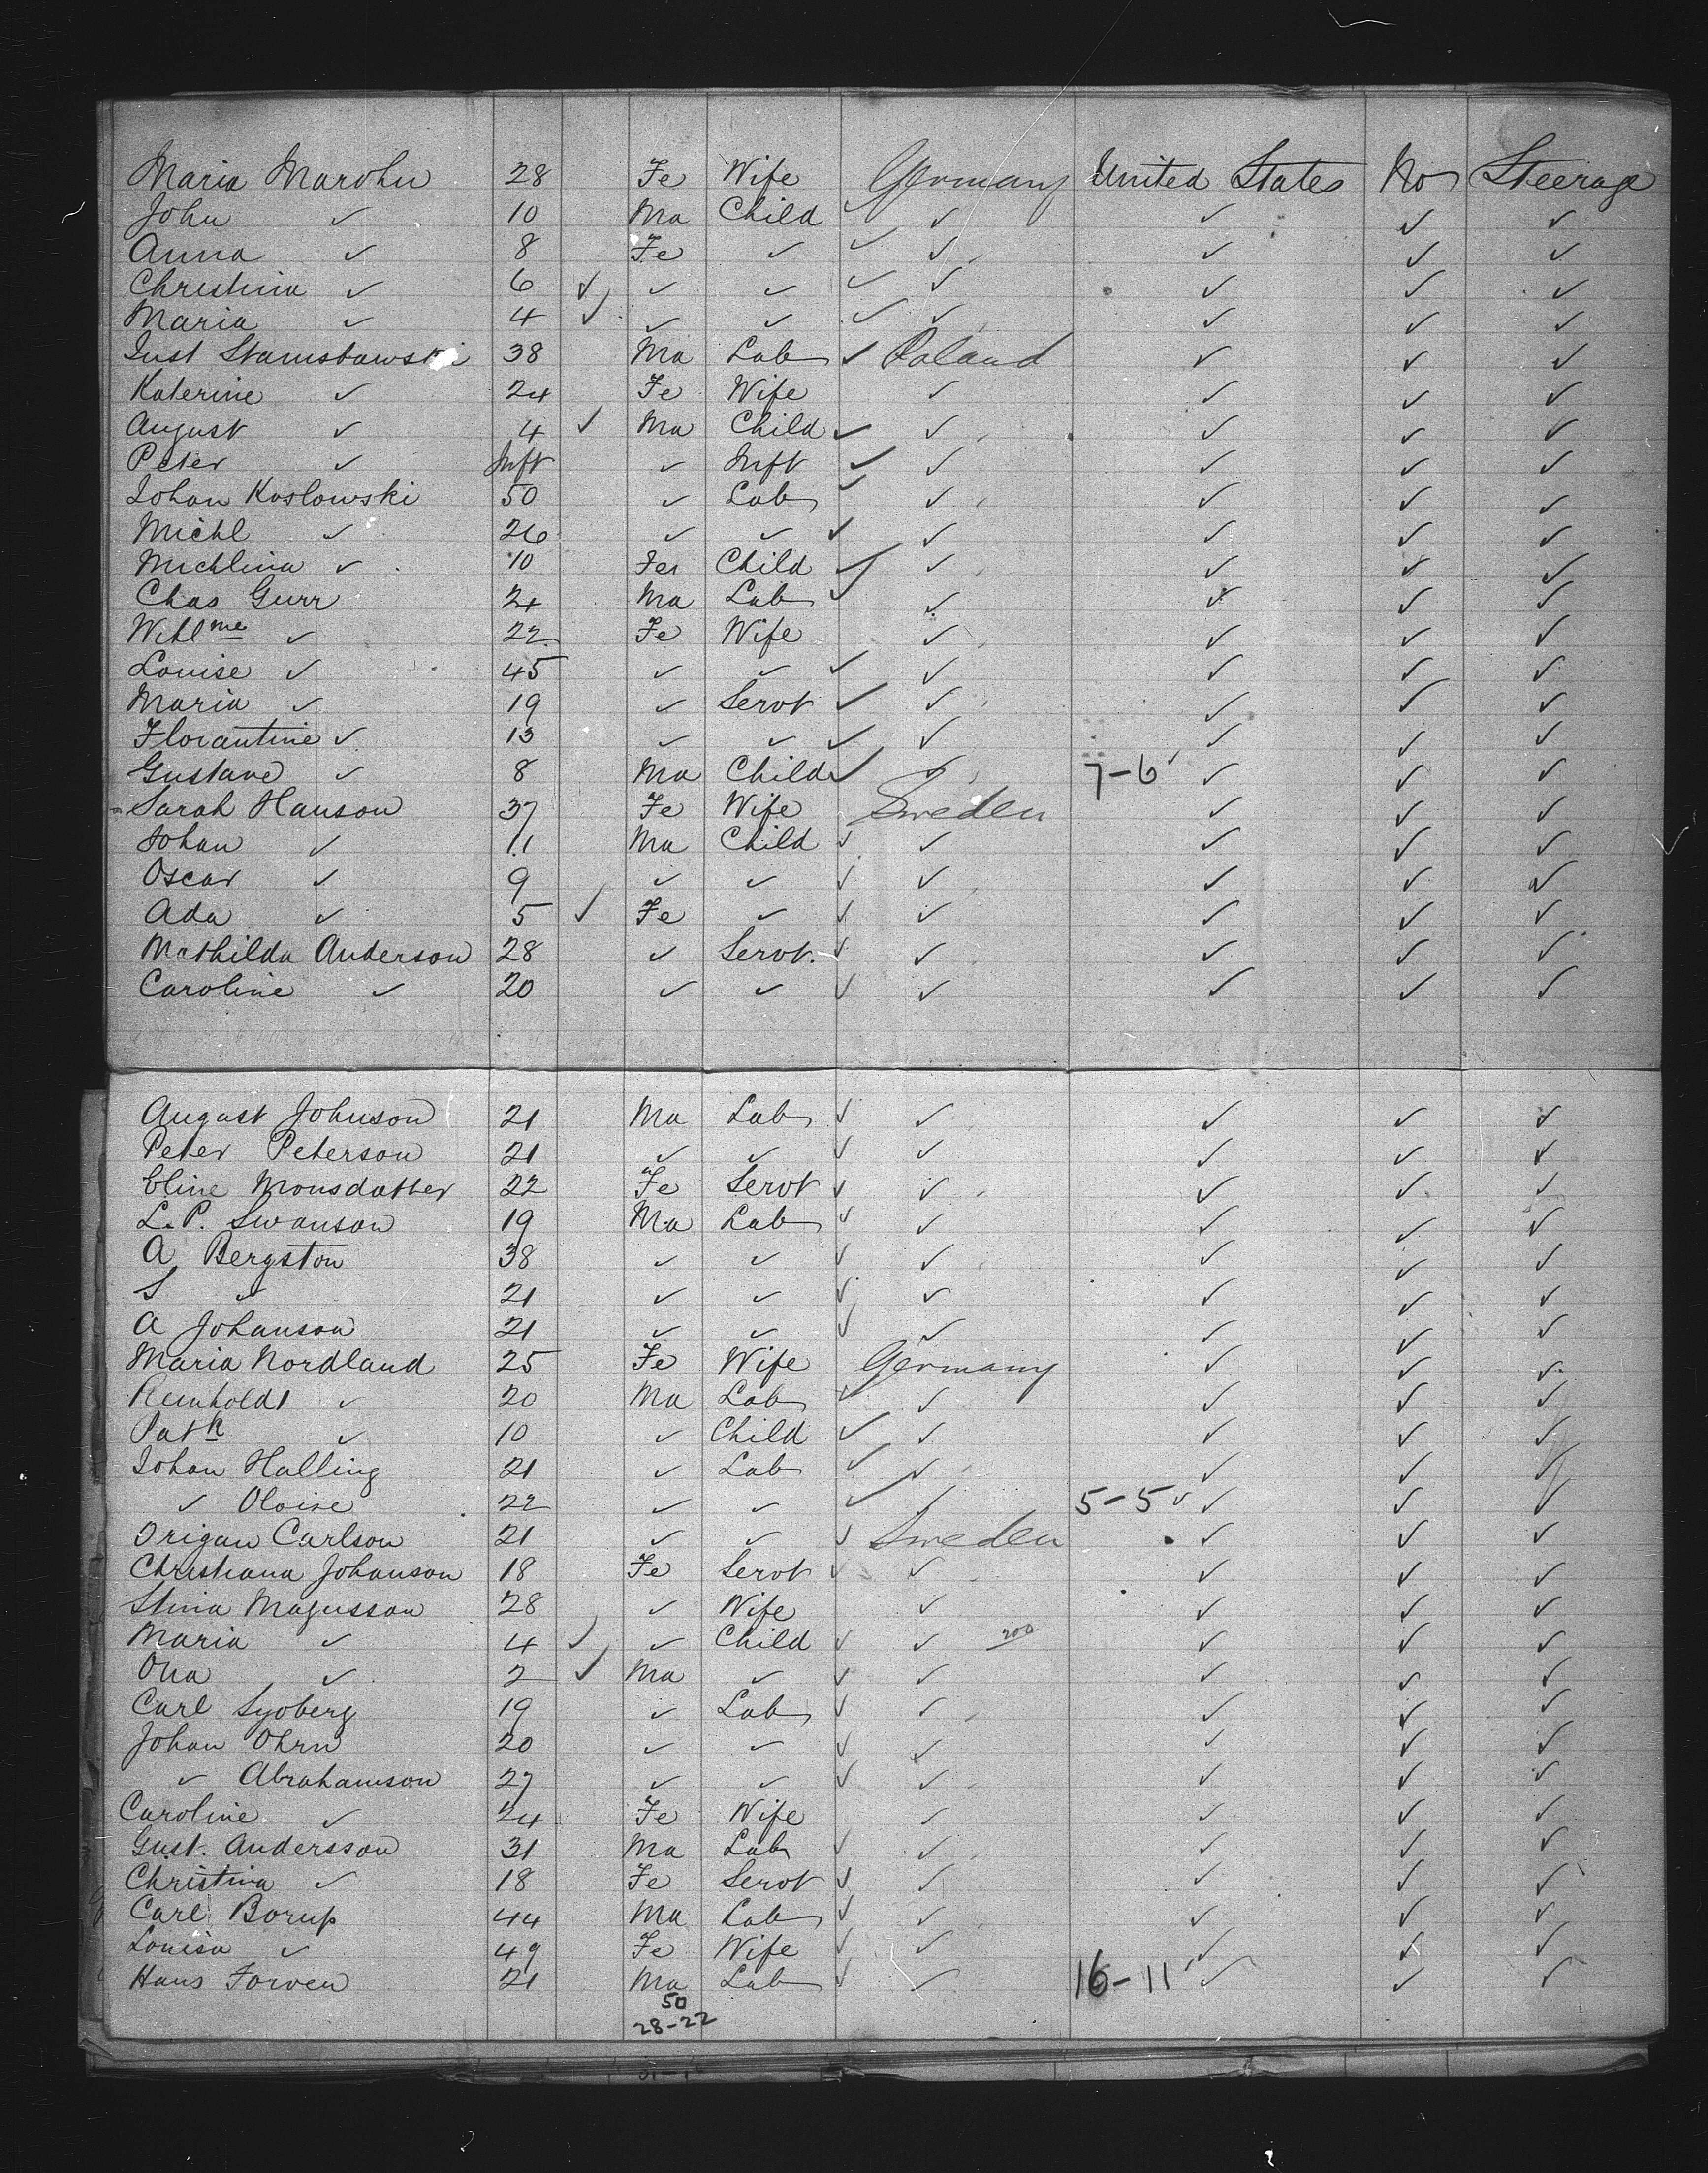 Maria Marohn 28 Fe Wife Germany United States No Steerage
John ✓ 10 Ma Child ✓ ✓ ✓ ✓ ✓
Anna ✓ 8 Fe ✓ ✓ ✓ ✓ ✓ ✓
Christina ✓ 6 ✓ ✓ ✓ ✓ ✓ ✓ ✓ ✓
Maria ✓ 4 ✓ ✓ ✓ ✓ ✓ ✓ ✓ ✓
Just Stanistawski 38 Ma Lab ✓ Poland ✓ ✓ ✓
Katerine ✓ 24 Fe Wife ✓ ✓ ✓ ✓
August ✓ 4 ✓ Ma Child ✓ ✓ ✓ ✓ ✓
Peter ✓ Inft ✓ Inft ✓ ✓ ✓ ✓ ✓
Johan Koslowski 50 ✓ Lab ✓ ✓ ✓ ✓ ✓
Michl ✓ 26 ✓ ✓ ✓ ✓ ✓ ✓ ✓
Michlina ✓ 10 Fe Child ✓ ✓ ✓ ✓ ✓
Chas Gurr 24 Ma Lab ✓ ✓ ✓ ✓ ✓
Wihl me ✓ 22 Fe Wife ✓ ✓ ✓ ✓
Louise ✓ 45 ✓ ✓ ✓ ✓ ✓ ✓ ✓
Maria ✓ 19 ✓ Servt ✓ ✓ ✓ ✓ ✓
Florantine ✓ 13 ✓ ✓ ✓ ✓ ✓ ✓ ✓
Gustave ✓ 8 Ma Child ✓ ✓ 7-6 ✓ ✓ ✓ ✓
Sarah Hanson 37 Fe Wife Sweden ✓ ✓ ✓
Johan ✓ 11 Ma Child ✓ ✓ ✓ ✓ ✓
Oscar ✓ 9 ✓ ✓ ✓ ✓ ✓ ✓ ✓
Ada ✓ 5 ✓ Fe ✓ ✓ ✓ ✓ ✓ ✓
Mathilda Anderson 28 ✓ Servt. ✓ ✓ ✓ ✓ ✓
Caroline ✓ 20 ✓ ✓ ✓ ✓ ✓ ✓ ✓
August Johnson 21 Ma Lab ✓ ✓ ✓ ✓ ✓
Peter Peterson 21 ✓ ✓ ✓ ✓ ✓ ✓ ✓
Eline Monsdatter 22 Fe Servt ✓ ✓ ✓ ✓ ✓
L. P. Swanson 19 Ma Lab ✓ ✓ ✓ ✓ ✓
A Bergston 38 ✓ ✓ ✓ ✓ ✓ ✓ ✓
S ✓ 21 ✓ ✓ ✓ ✓ ✓ ✓ ✓
A Johanson 21 ✓ ✓ ✓ ✓ ✓ ✓ ✓
Maria Nordland 25 Fe Wife Germany ✓ ✓ ✓
Reinholdt ✓ 20 Ma Lab ✓ ✓ ✓ ✓ ✓
Patk ✓ 10 ✓ Child ✓ ✓ ✓ ✓ ✓
Johan Halling 21 ✓ Lab ✓ ✓ ✓ ✓ ✓
✓ Oloise 22 ✓ ✓ ✓ ✓ 5-5 ✓ ✓ ✓ ✓
Origan Carlson 21 ✓ ✓ ✓ Sweden ✓ ✓ ✓
Christiana Johanson 18 Fe Servt ✓ ✓ ✓ ✓ ✓
Stina Magnusson 28 ✓ Wife ✓ ✓ ✓ ✓
Maria ✓ 4 ✓ ✓ Child ✓ ✓ 200 ✓ ✓ ✓
Ona ✓ 2 ✓ Ma ✓ ✓ ✓ ✓ ✓ ✓
Carl Syoberg 19 ✓ Lab ✓ ✓ ✓ ✓ ✓
Johan Ohrn 20 ✓ ✓ ✓ ✓ ✓ ✓ ✓
✓ Abrahamson 27 ✓ ✓ ✓ ✓ ✓ ✓ ✓
Caroline ✓ 24 Fe Wife ✓ ✓ ✓ ✓
Gust. Andersson 31 Ma Lab ✓ ✓ ✓ ✓ ✓
Christina ✓ 18 Fe Servt ✓ ✓ ✓ ✓ ✓
Carl Borup 44 Ma Lab ✓ ✓ ✓ ✓ ✓
Louisa ✓ 49 Fe Wife ✓ ✓ ✓ ✓ ✓
Hans Forven 21 Ma Lab ✓ ✓ 16-11 ✓ ✓ ✓ ✓
50
28-22